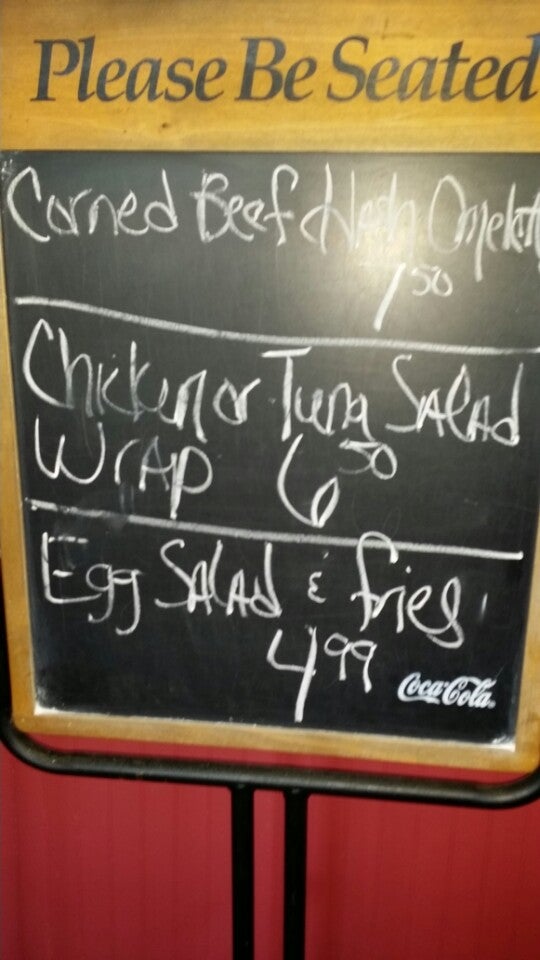 Please Be Seated
Corned Beef Hash Omelet
50
Chicken or Tuna Salad
Wrap 6 50
Egg Salad & fries
4 99
Coca-Cola